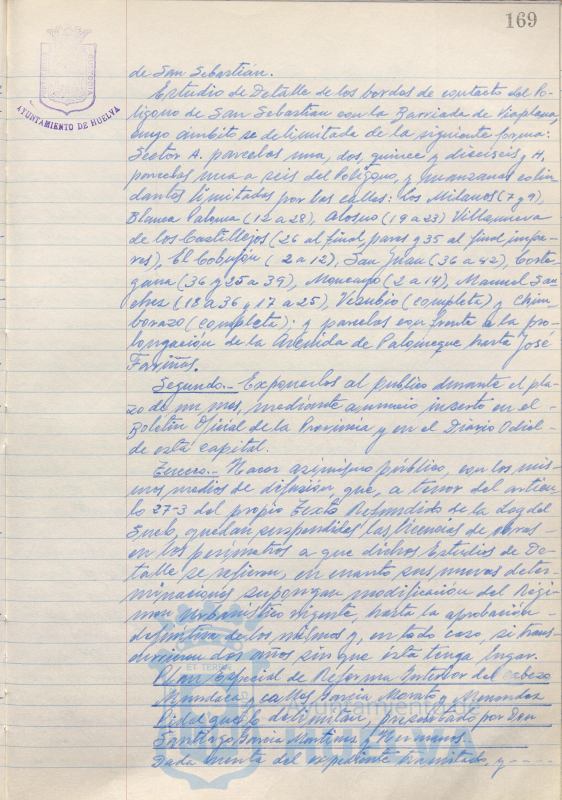 169
AYUNTAMIENTO DE HUELVA
de San Sebastián.
Estudio de Detalle de los bordes de contacto del Po-
lígono de San Sebastian con la Barriada de Viaplana,
cuyo ámbito se delimitada de la siguiente forma:
Sector A. parcelas una, dos, quince y dieciseis y H,
parcelas una a seis del Polígono, y manzanas colin
dantes limitadas por las calles: Los Milanos (7 y 9),
Blanca Paloma (12 a 28), Alosno (19 a 23) Villanueva
de los Castillejos (26 al final, pares y 35 al final impa-
res), El Cobujón (2 a 12), San Juan (36 a 42), Corte-
gana (36 y 25 a 39), Moncayo (2 a 14), Manuel San
chez (18 a 36 y 17 a 25), Vesubio (completa) y Chim
borazo (completa); y parcelas con frente a la pro-
longación de la Avenida de Palomeque hasta José
Fariñas.
Segundo.- Exponerlos al público durante el pla-
zo de un mes, mediante anuncio inserto en el -
Boletín Oficial de la Provincia y en el Diario Odiel-
de esta capital.
Tercero.- Hacer asimismo público, con los mis-
mos medios de difusión, que, a tenor del artícu-
lo 27-3 del propio Texto Refundido de la Ley del
Suelo, quedan suspendidas las licencias de obras -
en los perímetros a que dichos Estudios de De-
talle se refieren, en cuanto sus nuevas deter-
minaciones supongan modificación del Régi-
men Urbanístico vigente, hasta la aprobación -
definitiva de los mismos y, en todo caso, si trans-
currieran dos años sin que ésta tenga lugar.
Plan Especial de Reforma Interior del Cabezo
Mundaca, calles García Morato y Menendez
Pidal que lo delimitan, presentado por Don
Santiago García Martinez y Hermanos.
Dada cuenta del expediente tramitado, y ----
Ayuntamiento de
HUELVA